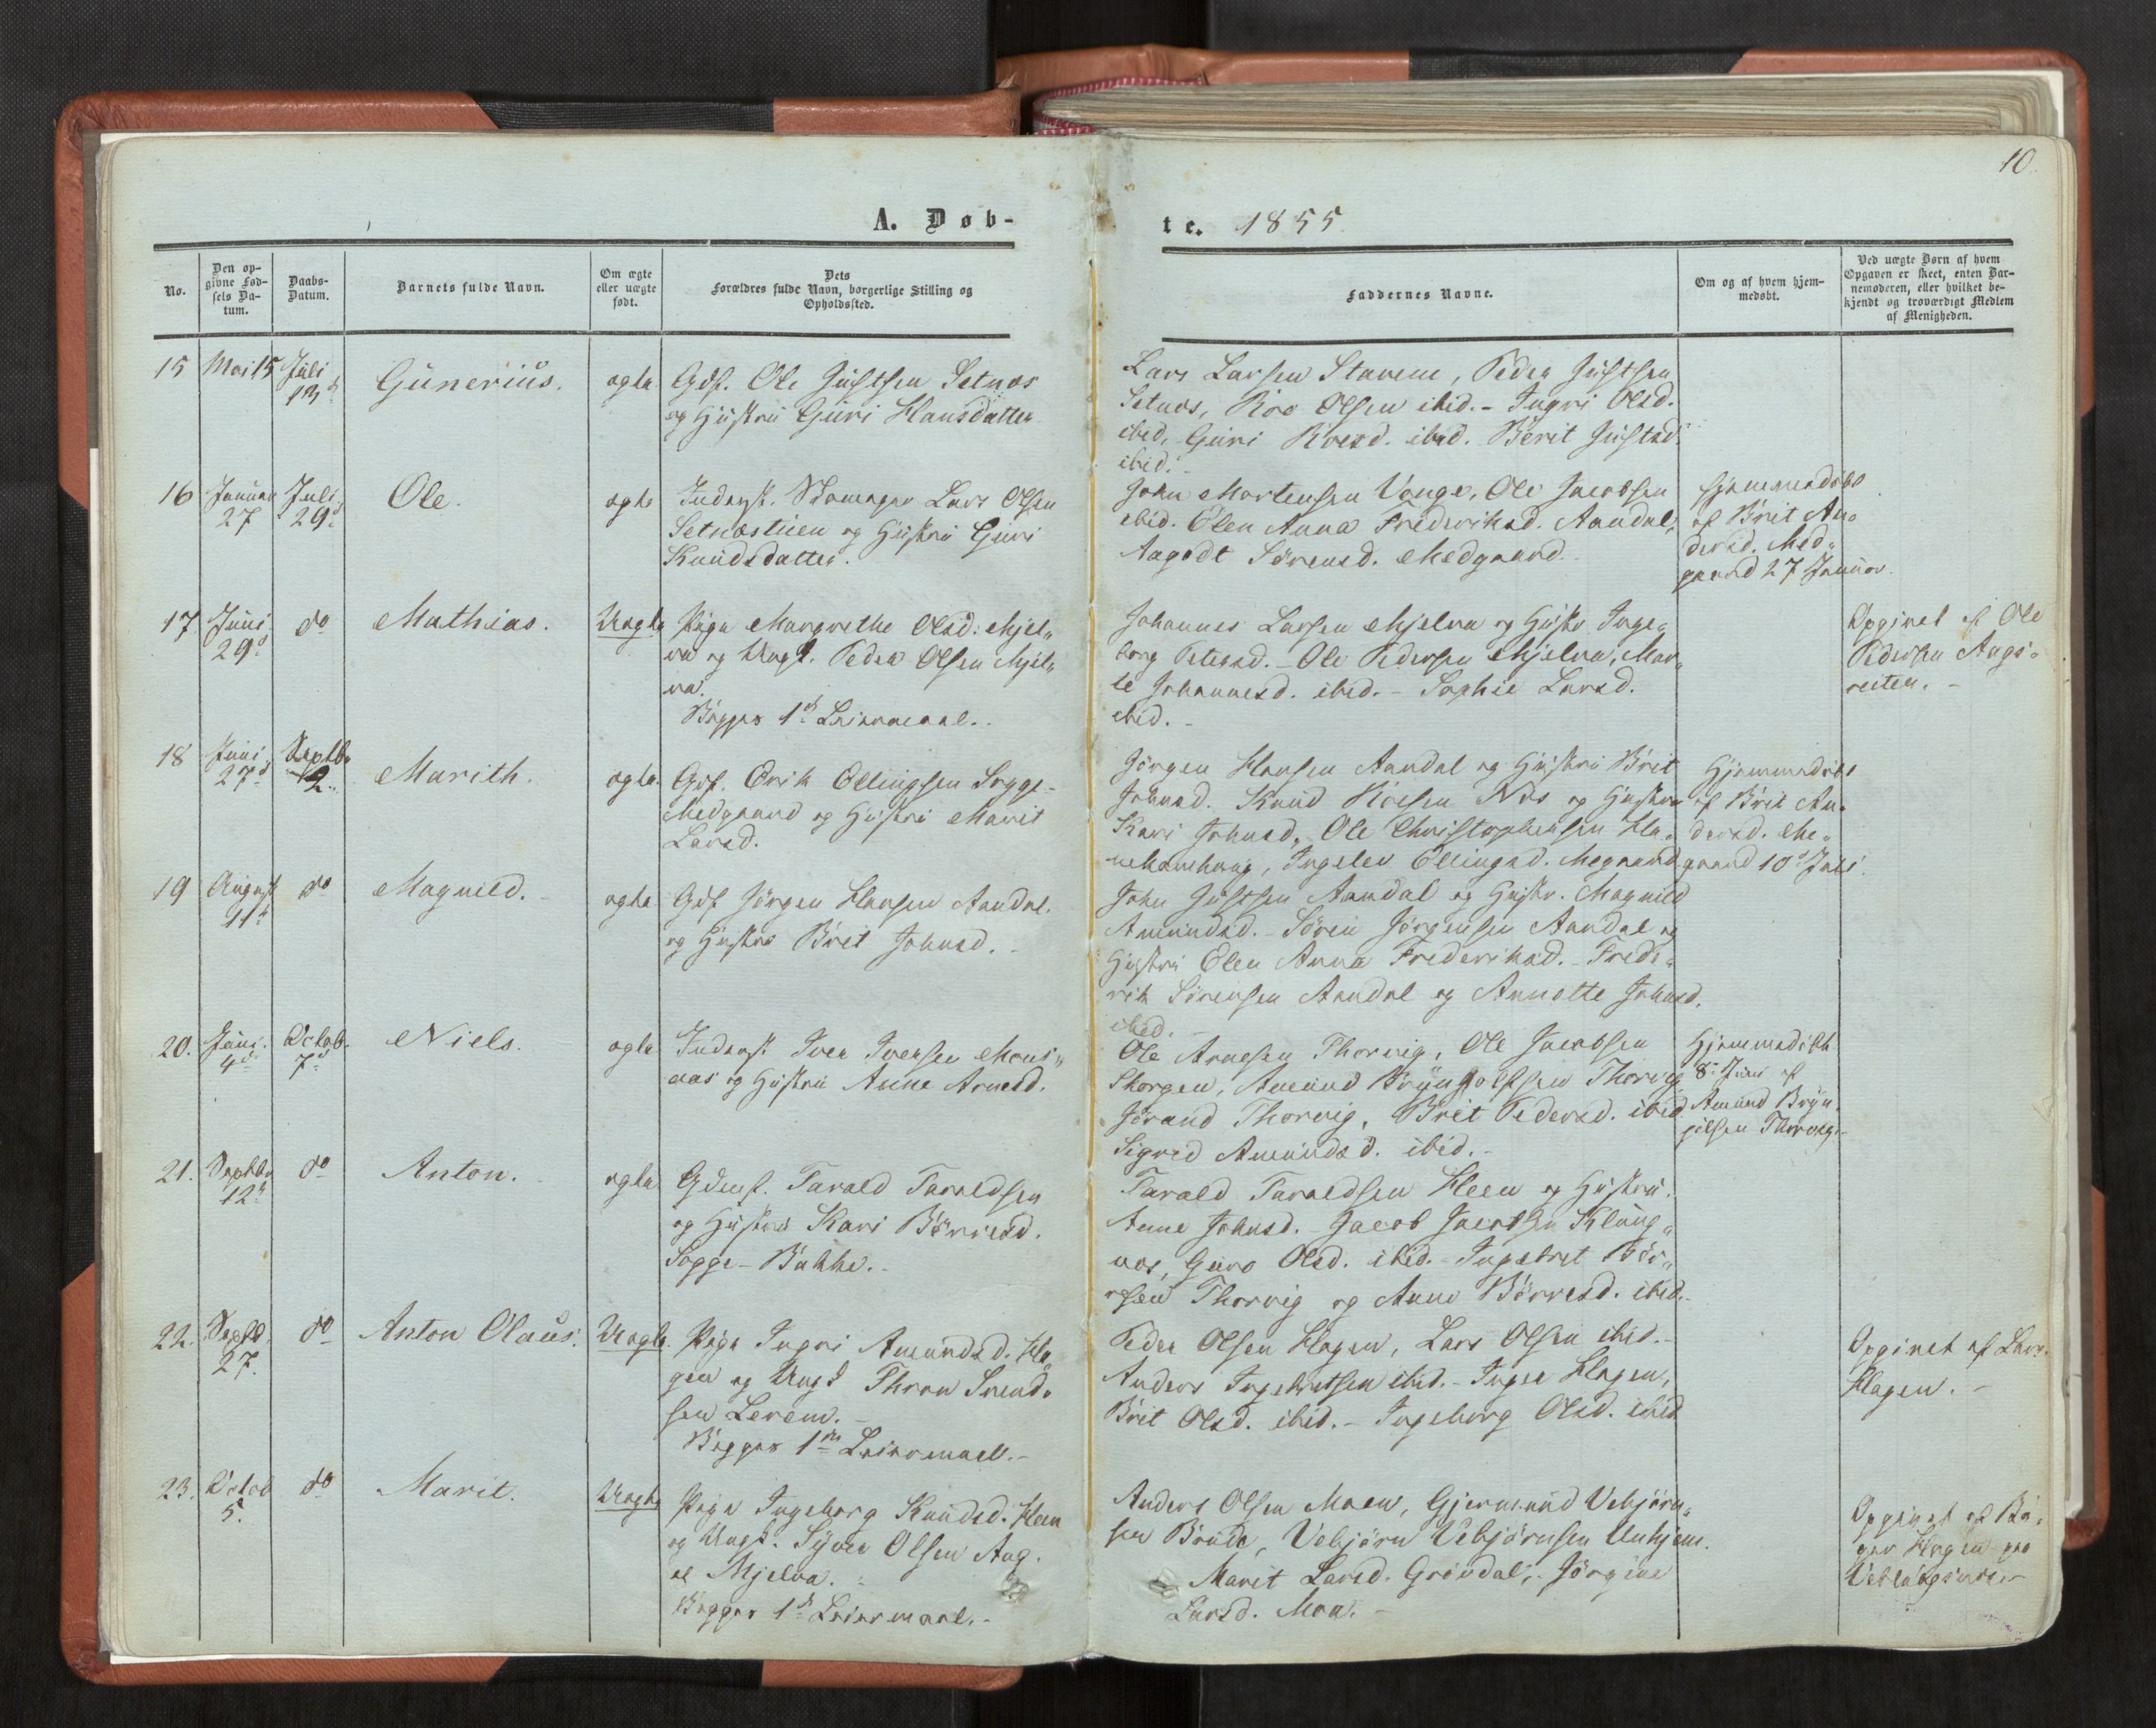 10.
A. Døb-
te. 1855
No.
Den op-
givne Fød-
sels Da-
tum.
Daabs-
Datum.
Barnets fulde Navn.
Om ægte
eller uægte
født.
Dets
Forældres fulde Navn, borgerlige Stilling og
Opholdssted.
Faddernes Navne.
Om og af hvem hjem-
medøbt.
Ved uægte Børn af hvem
Opgaven er skeet, enten Bar-
nemoderen, eller hvilket be-
kjendt og troværdigt Medlem
af Menigheden.
15 Mai 15 Juli
13
Gunerius.
ægte
Gdf. Ole Justsen Setnæs
og Hustru Guri Hansdatter
Lars Larsen Stavem, Peder Justsen
Setnæs, Roe Olsen ibid. - Ingri Olsd.
ibid, Guri Roesd. ibid. Berit Justsd.
ibid. -
16 Januar 27 Juli 29
Ole.
ægte
Inderst. Skomager Lars Olsen
Setnæstuen og Hustru Guri
Knudsdatter.
John Mortensen Venge, Ole Jacobsen
ibid. Elen Anna Frideriksd. Aandal,
Aagodt Sörensd. Medgaard.
Hjemmedöbt
af Brit An-
dersd. Med-
gaard 27 Januar
17 Juni 29 do
Mathias.
Uægte
Pige Margrethe Olsd. Mjel-
va og Ungk. Peder Olsen Mjel-
va.
Begges 1ste Leiermaal.
Johannes Larsen Mjelva og Hustr. Inge-
borg Petersd. - Ole Pedersen Mjelva, Mar-
te Johannesd. ibid. - Sophie Larsd.
ibid. -
Opgivet af Ole
Pedersen
18 Juni 27 Septb. 2
Marith.
ægte.
Gdf. Erik Ellingsen Sogge-
Medgaard og Hustru Marit
Larsd.
Jörgen Hansen Aandal og Hustru Brit
Johnsd. Knud Roesen Næs og Hustru
Kari Johnsd. Ole Christophersen
Ingelev Ellingsd. Megaard
Hjemmedöbt
af Brit An-
dersd. Me-
gaard 10 Juli.
19 August 11 do
Magnild.
ægte
Gdf Jörgen Hansen Aandal.
og Hustru Brit Johnsd. -
John Justsen Aandal og Hustr. Magnild
Amundsd. - Sören Jörgensen Aandal og
Hustru Elen Anna Frederiksd. - Frede-
rik Sörensen Aandal og Annette Johnsd.
ibid. -
20. Juni 4 Octob. 7
Niels.
ægte
Inderst. Iver Iversen Mons-
aas og Hustru Anne Arnesd.
Ole Arnesen Thorvig, Ole Jacobsen
Amund Brynjolfsen Thorvig
Jörand Thorvig, Brit Pedersd. ibid
Sigrid Amundsd. ibid. -
Hjemmedöbt
8 Juni af
Amund Bryn-
Thorvig. -
21. Septb. 12 do
Anton.
ægte
Tarald Taraldsen
og Hustru Kari Börresd.
Sogge-Bakke. -
Tarald Taraldsen Hleen og Hustru
Anne Johnsd. - Jacob Jacobsen Klung-
næs, Guro Olsd. ibid. -
Thorvig og Anne Börresd. ibid. -
22. Septb. 27. do
Anton Olaus.
Uægte.
Pige Ingri Amundsd. Ha-
gen og Ungk Thron Svend-
sen Lerem. -
Begges 1ste Leiermaal. -
Peder Olsen Hagen, Lars Olsen ibid. -
Anders Ingebretsen ibid. - Inger Hagen,
Brit Olsd. ibid. - Ingeborg Olsd. ibid
Opgivet af Lars
Hagen. -
23. Octob 5. do
Marit.
Uægte
Pige Ingeborg Knudsd. Hleen
og Ungk. Syver Olsen
Mjelva.
Begges 1ste Leiermaal. -
Anders Olsen Moen, Gjermund Vebjörn-
sen Brude, Vebjörn Vebjörnsen Unhjem.
Marit Larsd. Gröndal, Jörgine
Larsd. Moa. -
Opgivet af
Hagen paa